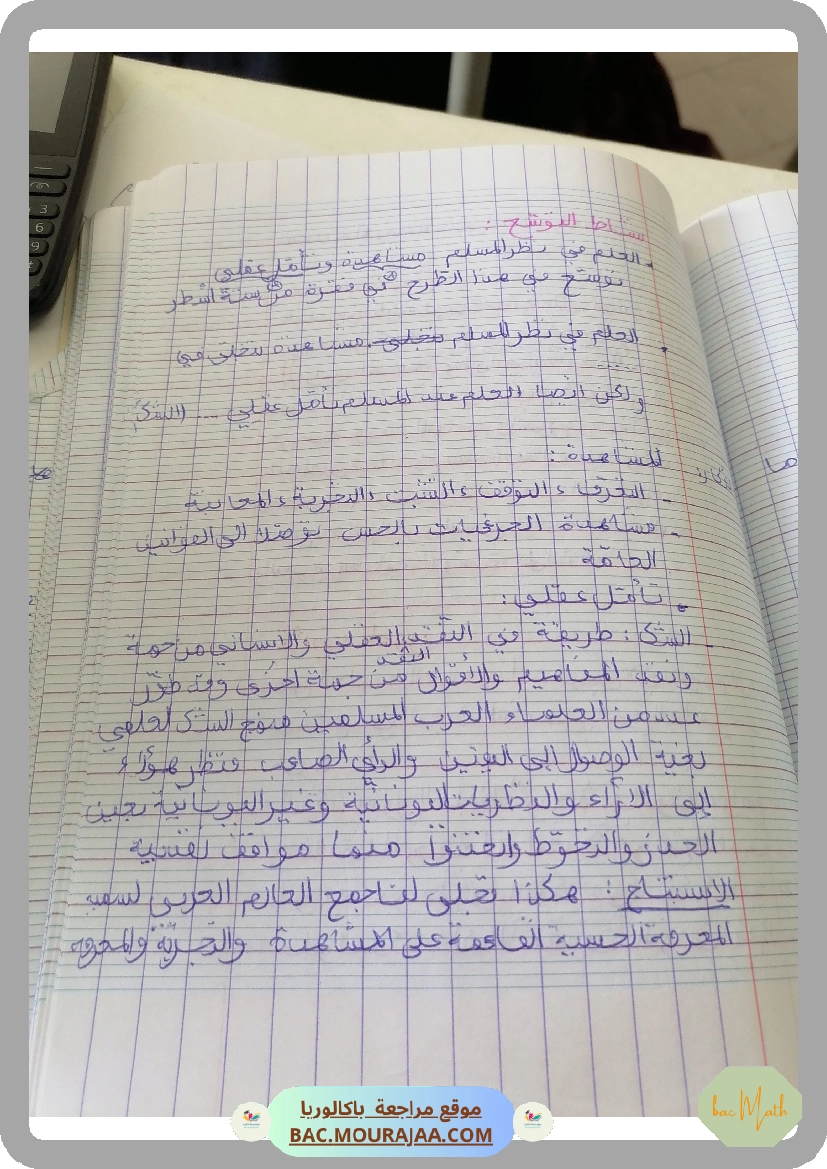 نشاط التوسّع :
العلم في نظر المسلم مشاهدة وتأمل عقلي
توسّع في هذا الطرح في فقرة من ستة أسطر
العلم في نظر المسلم مشاهدة تتجلى في
......
ولكن أيضا العلم عند المسلم تأمل عقلي .... (الشك
المشاهدة :
- التعرّف ، التوقف ، التثبت ، التجربة ، المعاينة
- مشاهدة الجزئيات بالحس توصلا الى القوانين
العامّة
- تأمّل عقلي :
- الشك : طريقة في النقد العقلي والإنساني من جهة
النقد
ونقد المفاهيم والأقوال من جهة أخرى وقد طوّر
من العلماء العرب المسلمين منهج الشك العلمي
بغية الوصول إلى اليقين والرأي الصائب فنظر هؤلاء
إلى الآراء والنظريات اليونانيّة وغير اليونانية بعين
الحذر والتحوّط واتخذوا منها مواقف نفسية
الإستنتاج : هكذا تجلى لنا جمع العالم العربي
المعرفة الحسية القائمة على المشاهدة والتجربة والمعرفة
3
6
9
موقع مراجعة باكالوريا
BAC.MOURAJAA.COM
bac Math